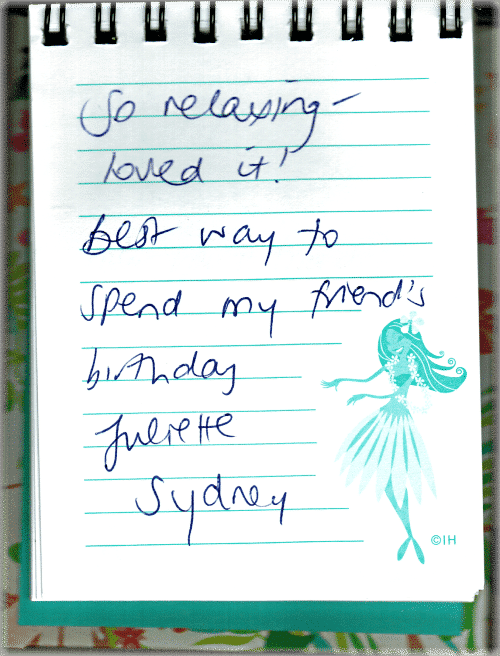 So relaxing –
loved it!
best way to
spend my friend's
birthday
Juliette
Sydney
©IH